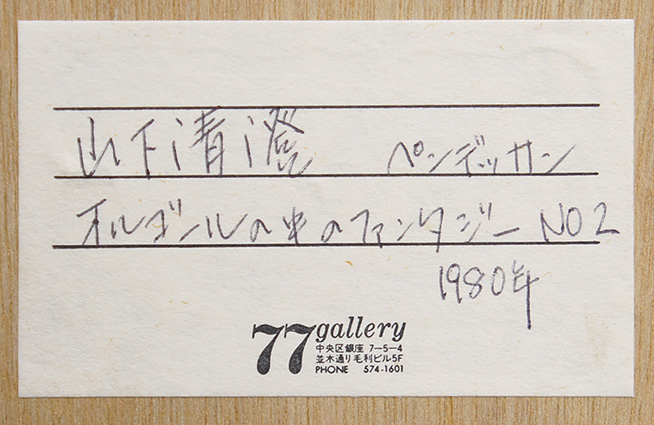 山下清澄 ペンデッサン
オルゴールの中のファンタジー NO2
1980年
77 gallery
中央区銀座 7-5-4
並木通り毛利ビル5F
PHONE 574-1601